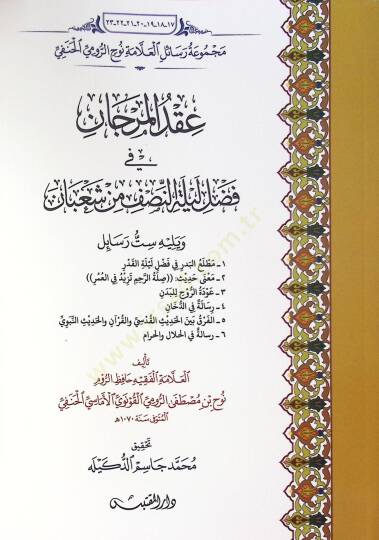 ١٧-١٨-١٩-٢٠-٢١-٢٢-٢٣
مَجْمُوعَةُ رَسَائِلِ العَلَّامَةِ نُوحٍ الرُّومِيِّ الحَنَفِيِّ
عِقْدُ المَرْجَانِ
في
فَضْلِ لَيْلَةِ النِّصْفِ مِنْ شَعْبَانَ
وَيَلِيهِ سِتُّ رَسَائِل
١ - مَطْلَعُ البَدْرِ فِي فَضْلِ لَيْلَةِ القَدْرِ
٢ - مَعْنَى حَدِيثِ: ((صِلَةُ الرَّحِمِ تَزِيدُ فِي العُمُرِ))
٣ - عَوْدَةُ الرُّوحِ لِلبَدَنِ
٤ - رِسَالَةٌ فِي الدُّخَانِ
٥ - الفَرْقُ بَيْنَ الحَدِيثِ القُدْسِيِّ وَالقُرْآنِ وَالحَدِيثِ النَّبَوِيِّ
٦ - رسالةٌ في الحلال والحرام
تَأْلِيفُ
العَلَّامَةِ الفَقِيهِ حَافِظِ الرُّومِ
نُوحِ بْنِ مُصْطَفَى الرُّومِيِّ القُونَوِيِّ الأَمَاسِيِّ الحَنَفِيِّ
المُتَوَفَّى سَنَةَ ١٠٧٠هـ
تَحْقِيقُ
مُحَمَّد جَاسِم الدّكيلَه
دَارُ المُقْتَبَسِ